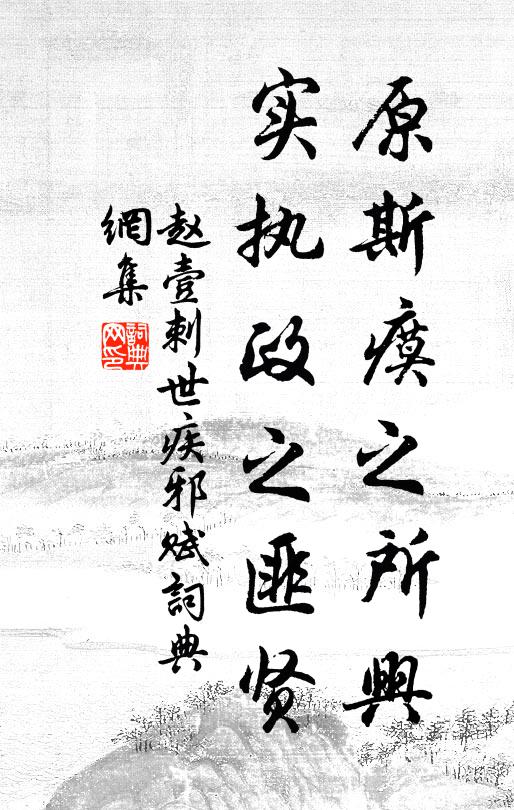 原斯瘼之所興
实执政之匪贤
赵壹刺世疾邪赋詞典
網集
詞典網印